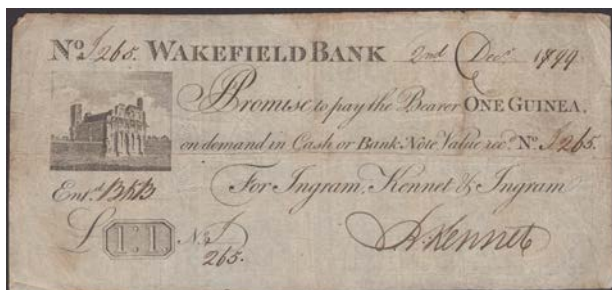 No. J265. WAKEFIELD BANK 2nd Decr. 1799
I Promise to pay the Bearer ONE GUINEA,
on demand in Cash or Bank Note Value recd. No. J265.
Entd. For Ingram, Kennet & Ingram
£ 1:1. No. J
265.